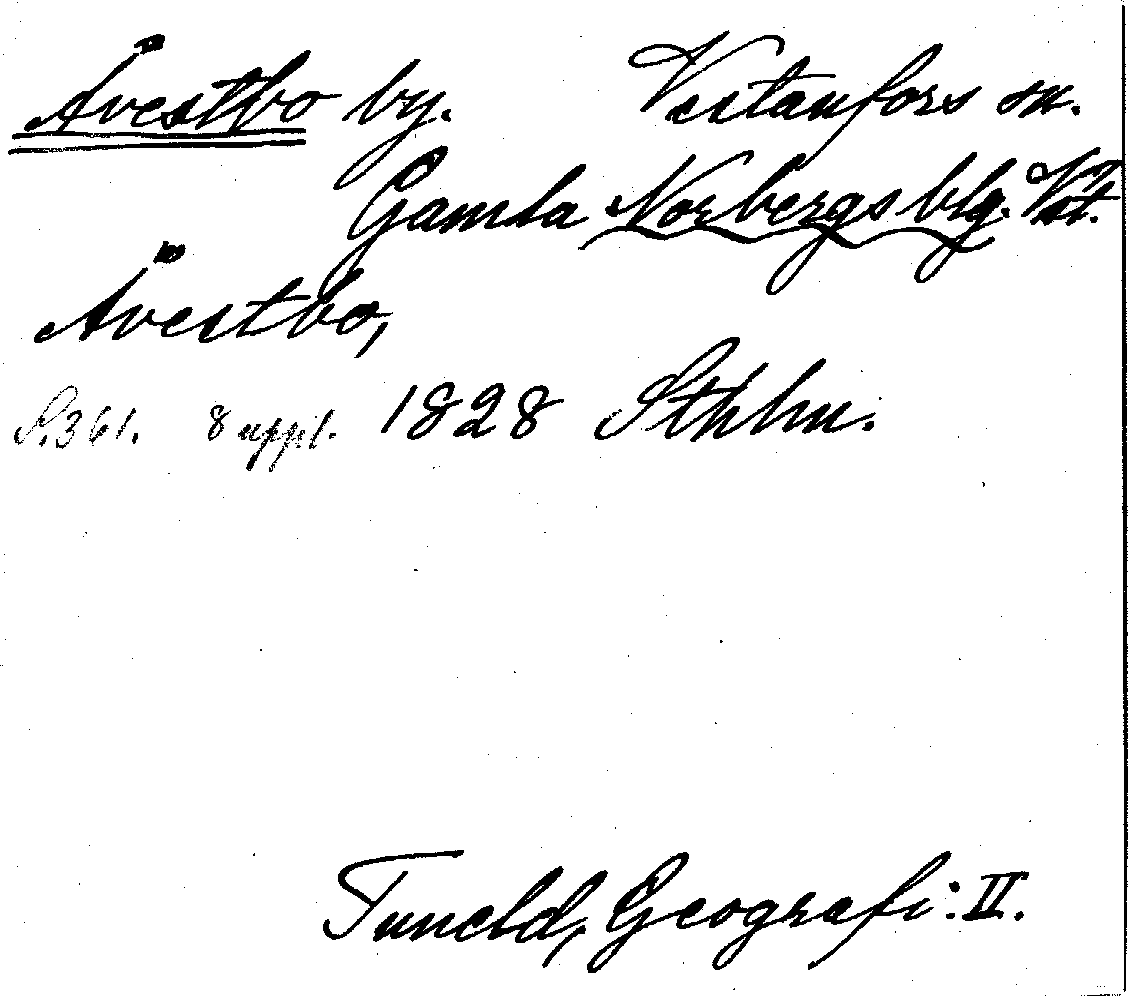 Åvestbo by. Vestanfors sn.
Gamla Norbergs blg. Vst.
Åvestbo,
S. 361. 8 uppl. 1828 Sthlm.
Tuneld, Geografi: II.